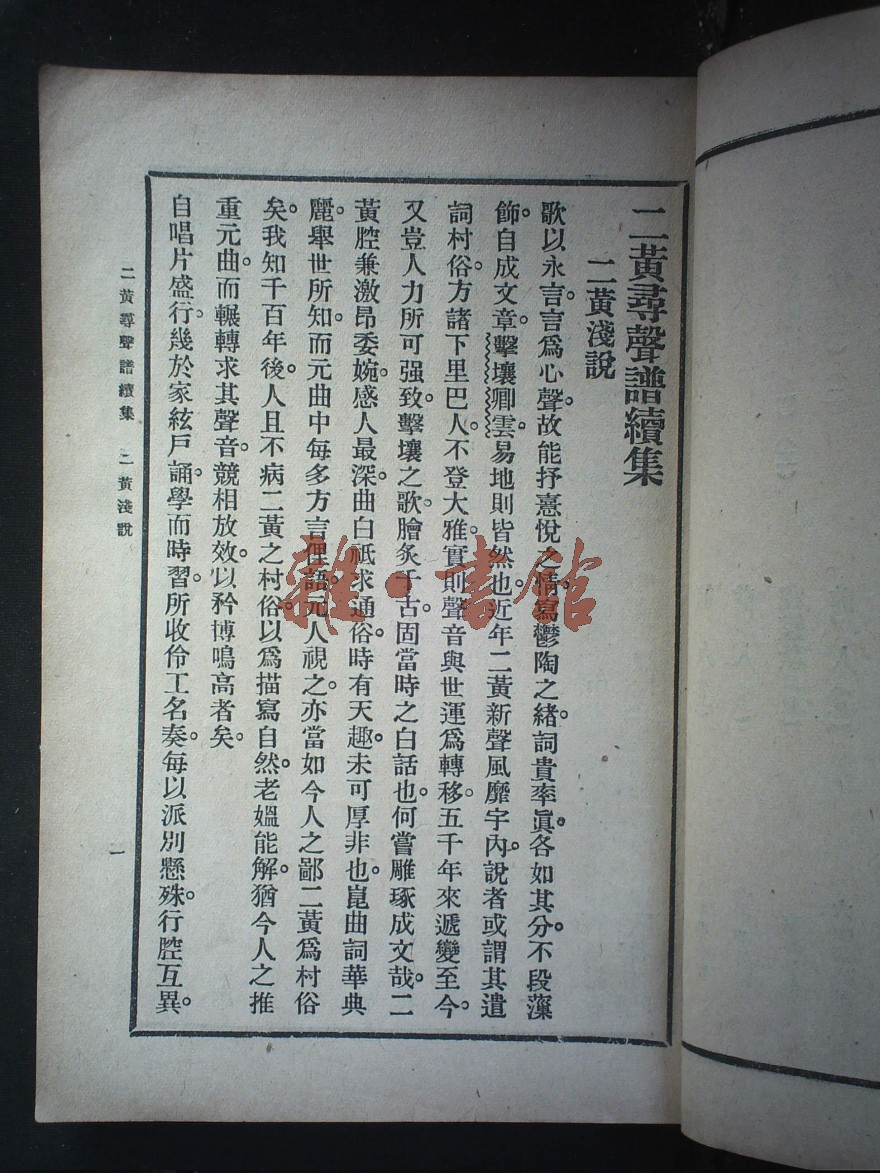 二黃尋聲譜續集
二黃淺說
歌以永言。言爲心聲。故能抒憙悅之情。寫鬱陶之緒。詞貴率眞。各如其分。不段藻
飾。自成文章。擊壤卿雲。易地則皆然也。近年二黃新聲風靡宇內。說者或謂其遣
詞村俗。方諸下里巴人。不登大雅。實則聲音與世運爲轉移。五千年來遞變至今。
又豈人力所可强致。擊壤之歌。膾炙千古。固當時之白話也。何嘗雕琢成文哉。二
黃腔兼激昂委婉。感人最深。曲白祇求通俗。時有天趣。未可厚非也。崑曲詞華典
麗。舉世所知。而元曲中每多方言俚語。元人視之。亦當如今人之鄙二黃爲村俗
矣。我知千百年後。人且不病二黃之村俗。以爲描寫自然。老嫗能解。猶今人之推
重元曲。而輾轉求其聲音。競相放效。以矜博鳴高者矣。
自唱片盛行。幾於家絃戶誦。學而時習。所收伶工名奏。每以派別懸殊。行腔互異。
二黃尋聲譜續集 二黃淺說
一
雜·書館